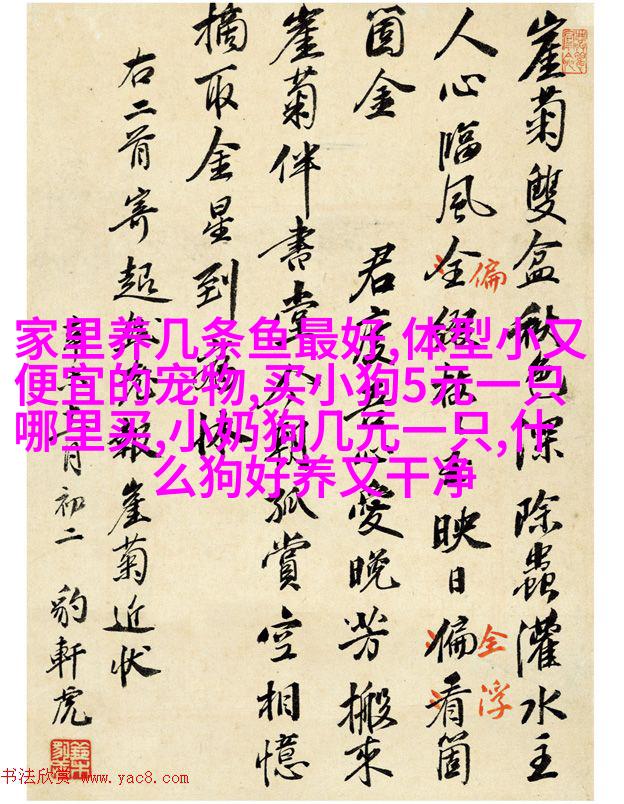 崖菊雙盆秋色深除蟲灌水主
人心臨風全綴映日偏看箇
偏
全浮
箇金
君愛晚芳搬來
崖菊伴書堂孤賞空相憶
摘取金星到
右二首寄報崖菊近状
月初二 豹軒虎
家里养几条鱼最好,体型小又
便宜的宠物,买小狗5元一只
哪里买,小奶狗几元一只,什
么狗好养又干净
书法欣赏 www.yac8.com